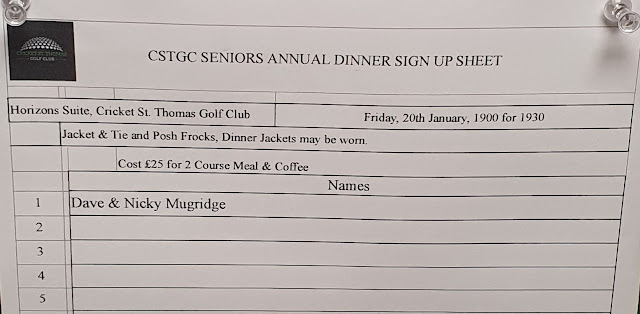 CRICKET ST THOMAS
GOLF CLUB
CSTGC SENIORS ANNUAL DINNER SIGN UP SHEET
Horizons Suite, Cricket St. Thomas Golf Club
Friday, 20th January, 1900 for 1930
Jacket & Tie and Posh Frocks, Dinner Jackets may be worn.
Cost £25 for 2 Course Meal & Coffee
Names
1 Dave & Nicky Mugridge
2
3
4
5